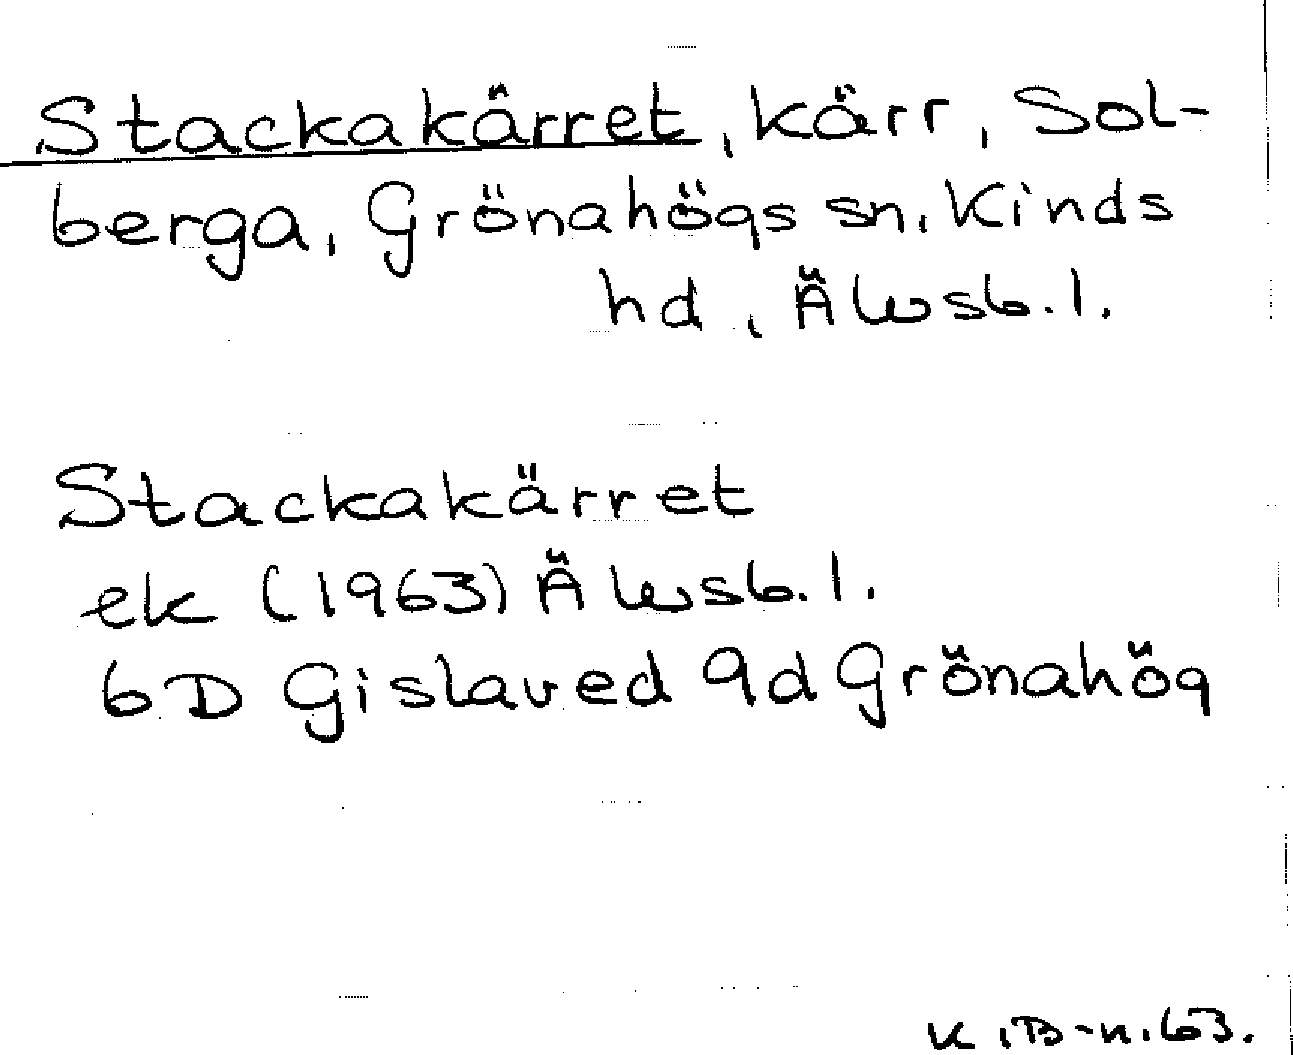 Stackakärret, kärr, Sol-
berga, Grönahögs sn, Kinds
hd, Älvsb. l.
Stackakärret
ek (1963) Älvsb. l.
6D Gislaved 9d Grönahög
K. B-n. 63.